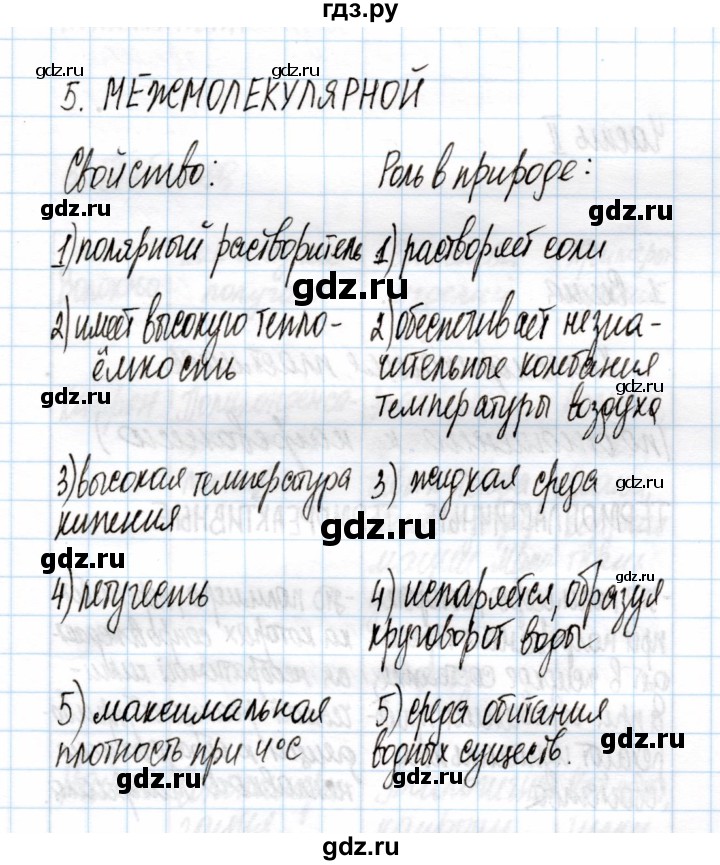 гдз.ру
gdz.ru gdz.ru
5. МЕЖМОЛЕКУЛЯРНОЙ
Свойство: Роль в природе:
gdz.ru gdz.ru
1) полярный растворитель 1) растворяет соли
gdz.ru
2) имеет высокую тепло- 2) обеспечивает незна-
ёмкость чительные колебания
gdz.ru gdz.ru
температуры воздуха
3) высокая температура 3) жидкая среда
gdz.ru
кипения
gdz.ru
gdz.ru
4) летучесть 4) испаряется, образуя
gdz.ru
круговорот воды
gdz.ru
5) максимальная 5) среда обитания
gdz.ru
плотность при 4°С водных существ.
gdz.ru gdz.ru
gdz.ru